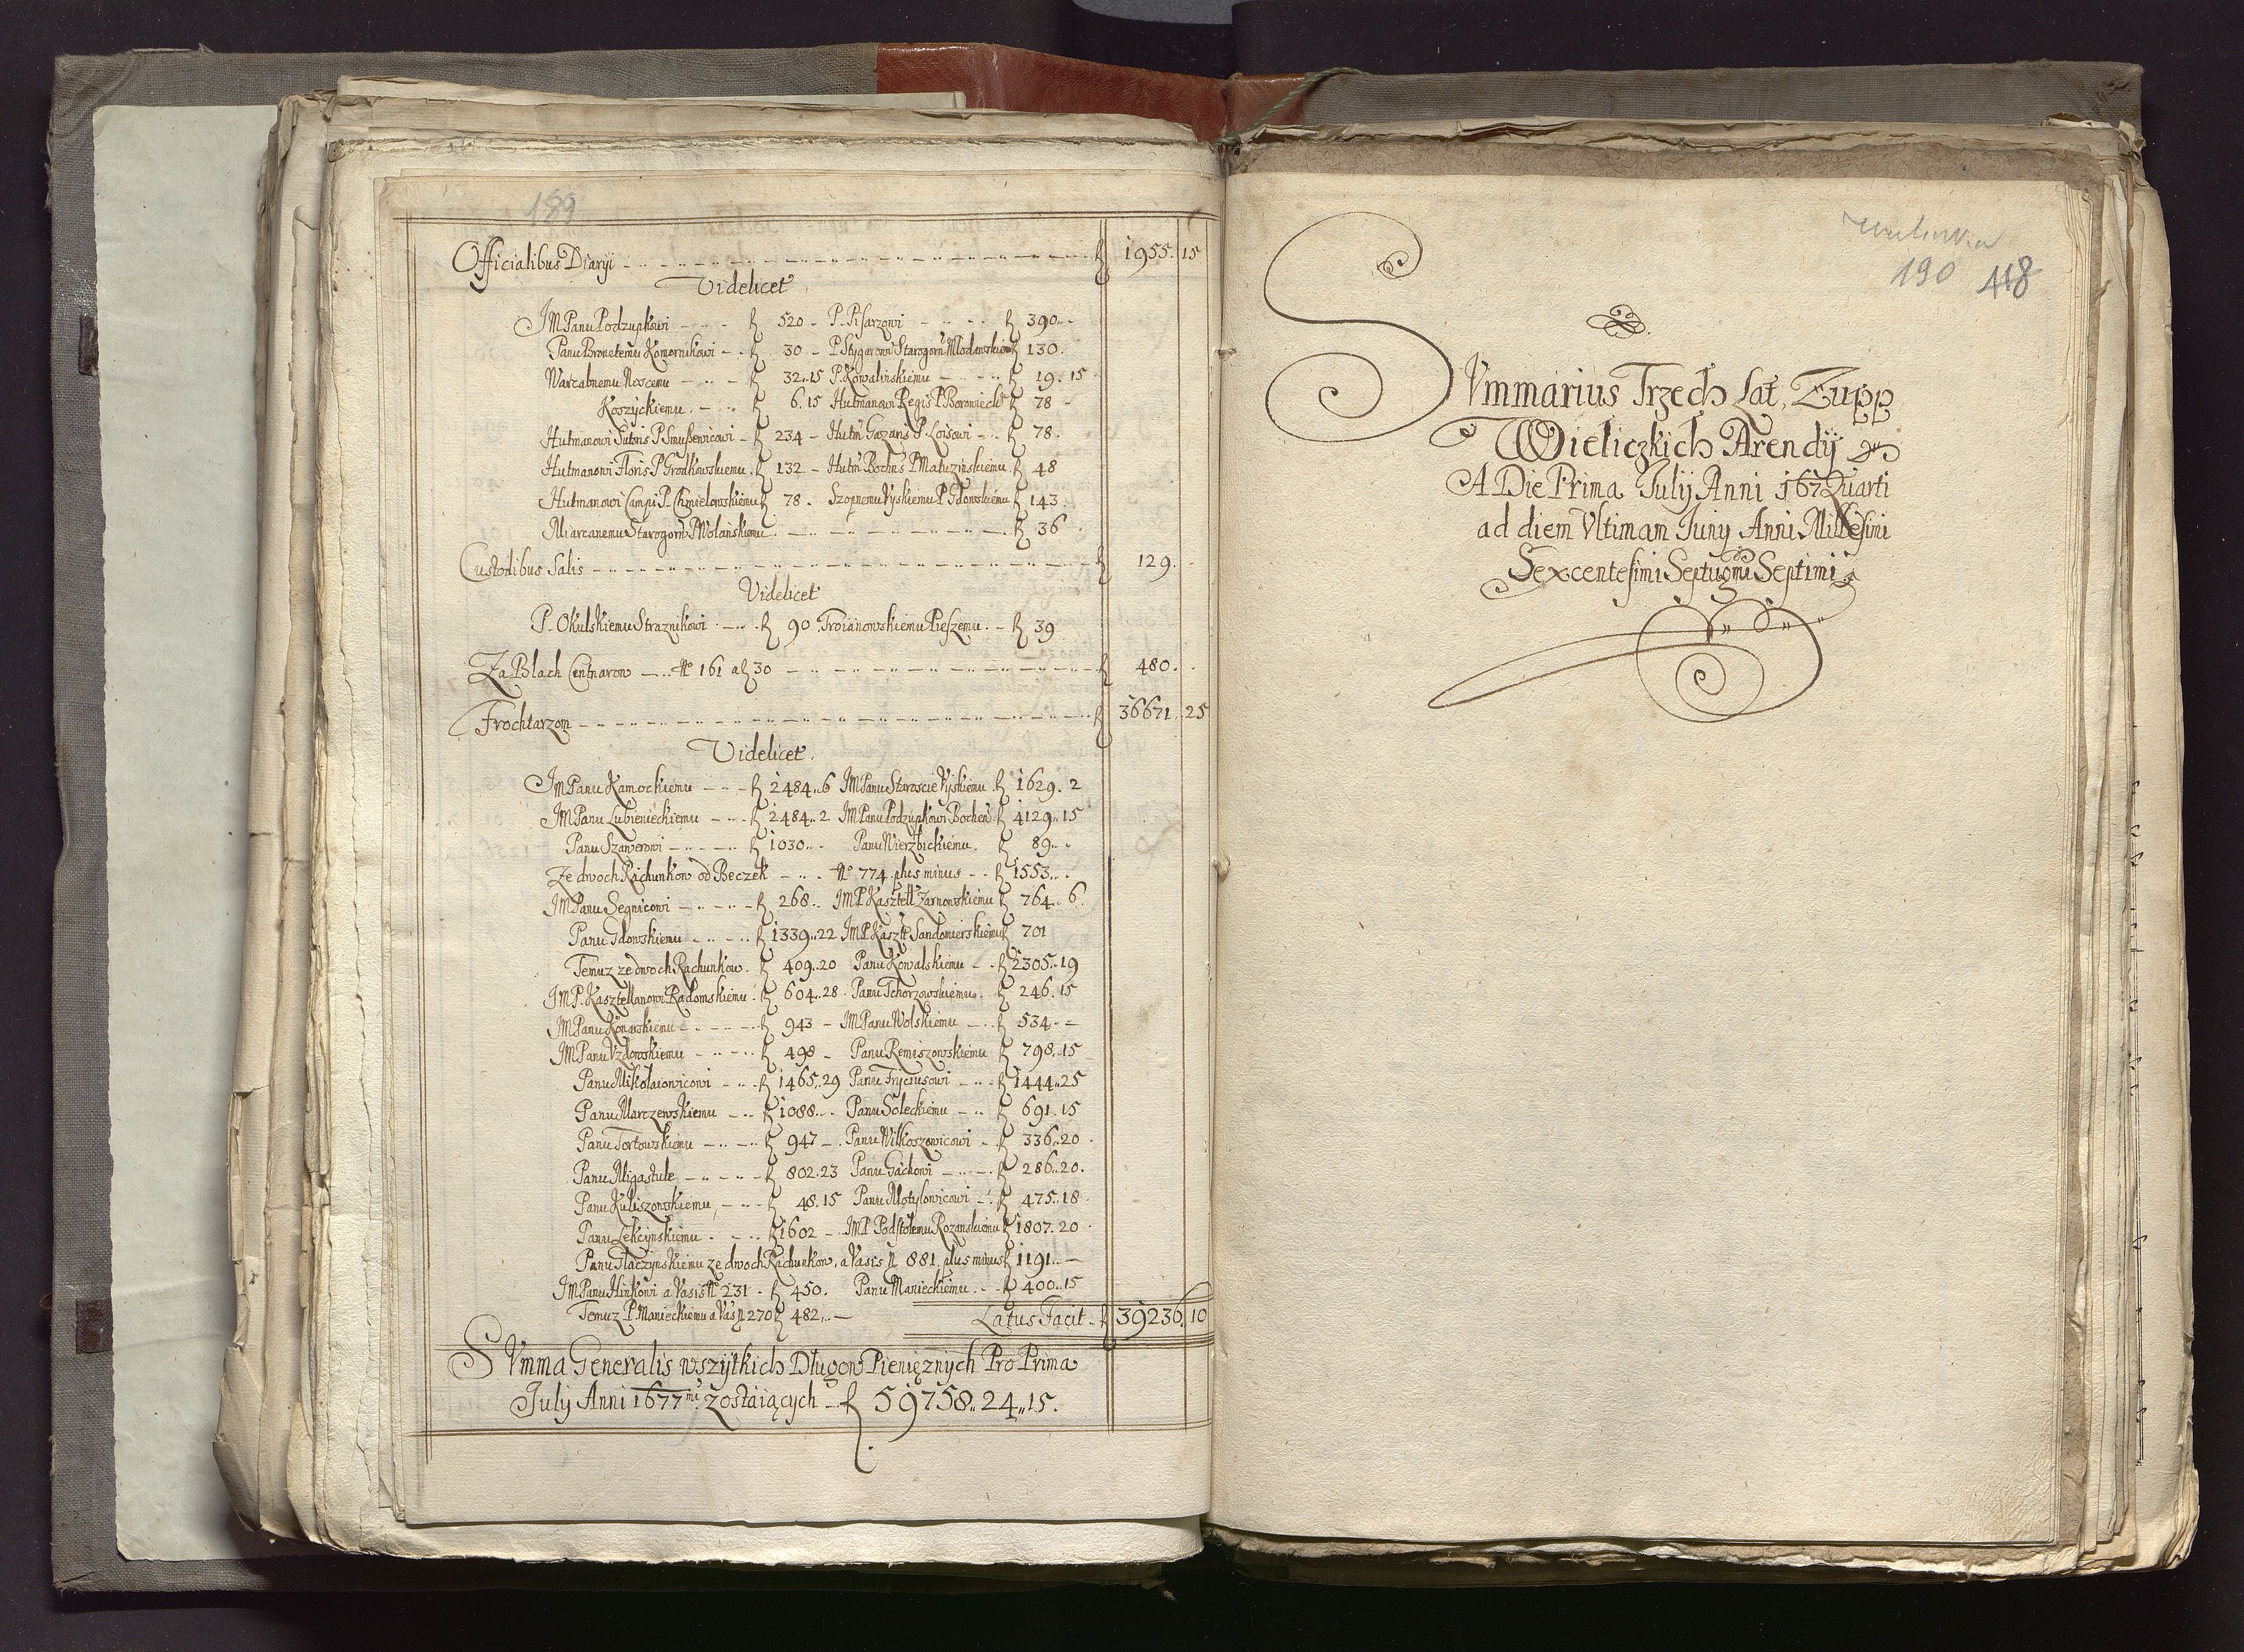 189
Officialibus Diaryi f 1955. 15
Videlicet
JM Panu Podzupkowi f 520 - P. Pisarzowi f 390
Panu Bronetemu Komornikowi f 30 - P Stygarowi Starogorn Mlodowskiemu f 130.
Warcabnemu Noscemu f 32..15 P. Kowalinskiemu f 19. 15
Koszyckiemu f 6.15 Hutmanowi Regis P Borowiecki f 78 -
Hutmanowi Sutoris P Smußewicowi f 234 - Hutm Gazaris P. Loisowi f 78.
Hutmanowi Floris P Grodkowskiemu f 132 - Hutm Bochn̄s P Matuzinskiemu f 48
Hutmanowi Campi P. Chmielowskiemu f 78. Szopnemu Vyskiemu P Gdowskiemu f 143
Miarcanemu Starogorn P Wolanskiemu f 36
Custodibus Salis f 129.
Videlicet
P. Okulskiemu Straznikowi f 90 Troianowskiemu Pieszemu f 39
Za Blach Centnarow No 161 a f 30 f 480.
Frochtarzom f 36671. 25
Videlicet
JM Panu Kamockiemu f 2484..6 JM Panu Staroscie Vyskiemu f 1629. 2
JM Panu Lubienieckiemu f 2484..2 JM Panu Podzupkowi Bochen f 4129..15
Panu Szawerowi f 1030 Panu Wierzbickiemu f 89
Ze dwoch Rachunkow od Beczek No 774 plus minus f 1553
JM Panu Segnicowi f 268.. JM P Kasztell Zarnowskiemu f 764.. 6
Panu Gdowskiemu f 1339..22 JM P Kaszte Sandomierskiemu f 701
Temuz ze dwoch Rachunkow f 409..20 Panu Kowalskiemu f 2305..19
JM P. Kasztellanowi Radomskiemu f 604..28 Panu Tchorzowskiemu f 246. 15
JM Panu Konarskiemu f 943 - JM Panu Wolskiemu f 534
JM Panu Vzdowskiemu f 498 - Panu Remiszowskiemu f 798..15
Panu Mikolaiowicowi f 1465..29 Panu Fryciusowi f 1444..25
Panu Marczewskiemu f 1088 Panu Soleckiemu f 691. 15
Panu Tortowskiemu f 947 - Panu Wilkoszowicowi f 336..20
Panu Migastule f 802.23 Panu Gackowi f 286..20.
Panu Kuliszowskiemu f 48.15 Panu Motylowicowi f 475..18
Panu Zekcynskiemu f 1602 - JM P Podstolemu Rozanskiemu f 1807. 20
Panu Tłaczynskiemu ze dwoch Rachunkow, a Vasis N 881 plus minus f 1191
JM Panu Hinkowi a Vasis No 231 f 450. Panu Manieckiemu f 400..15
Temuz P Manieckiemu a Vas N 270 f 482
Latus Facit f 39236. 10
SVmma Generalis wszytkich Długow Pieniężnych Pro Prima
July Anni 1677mi zostaiących f 59758..24..15.
190 418
SVmmarius Trzech Lat, Zupp
Wieliczkich Arendy
A Die Prima July Anni 167 Quarti
ad diem Vltimam Juny Anni Millesimi
Sexcentesimi Septuagmi Septimi